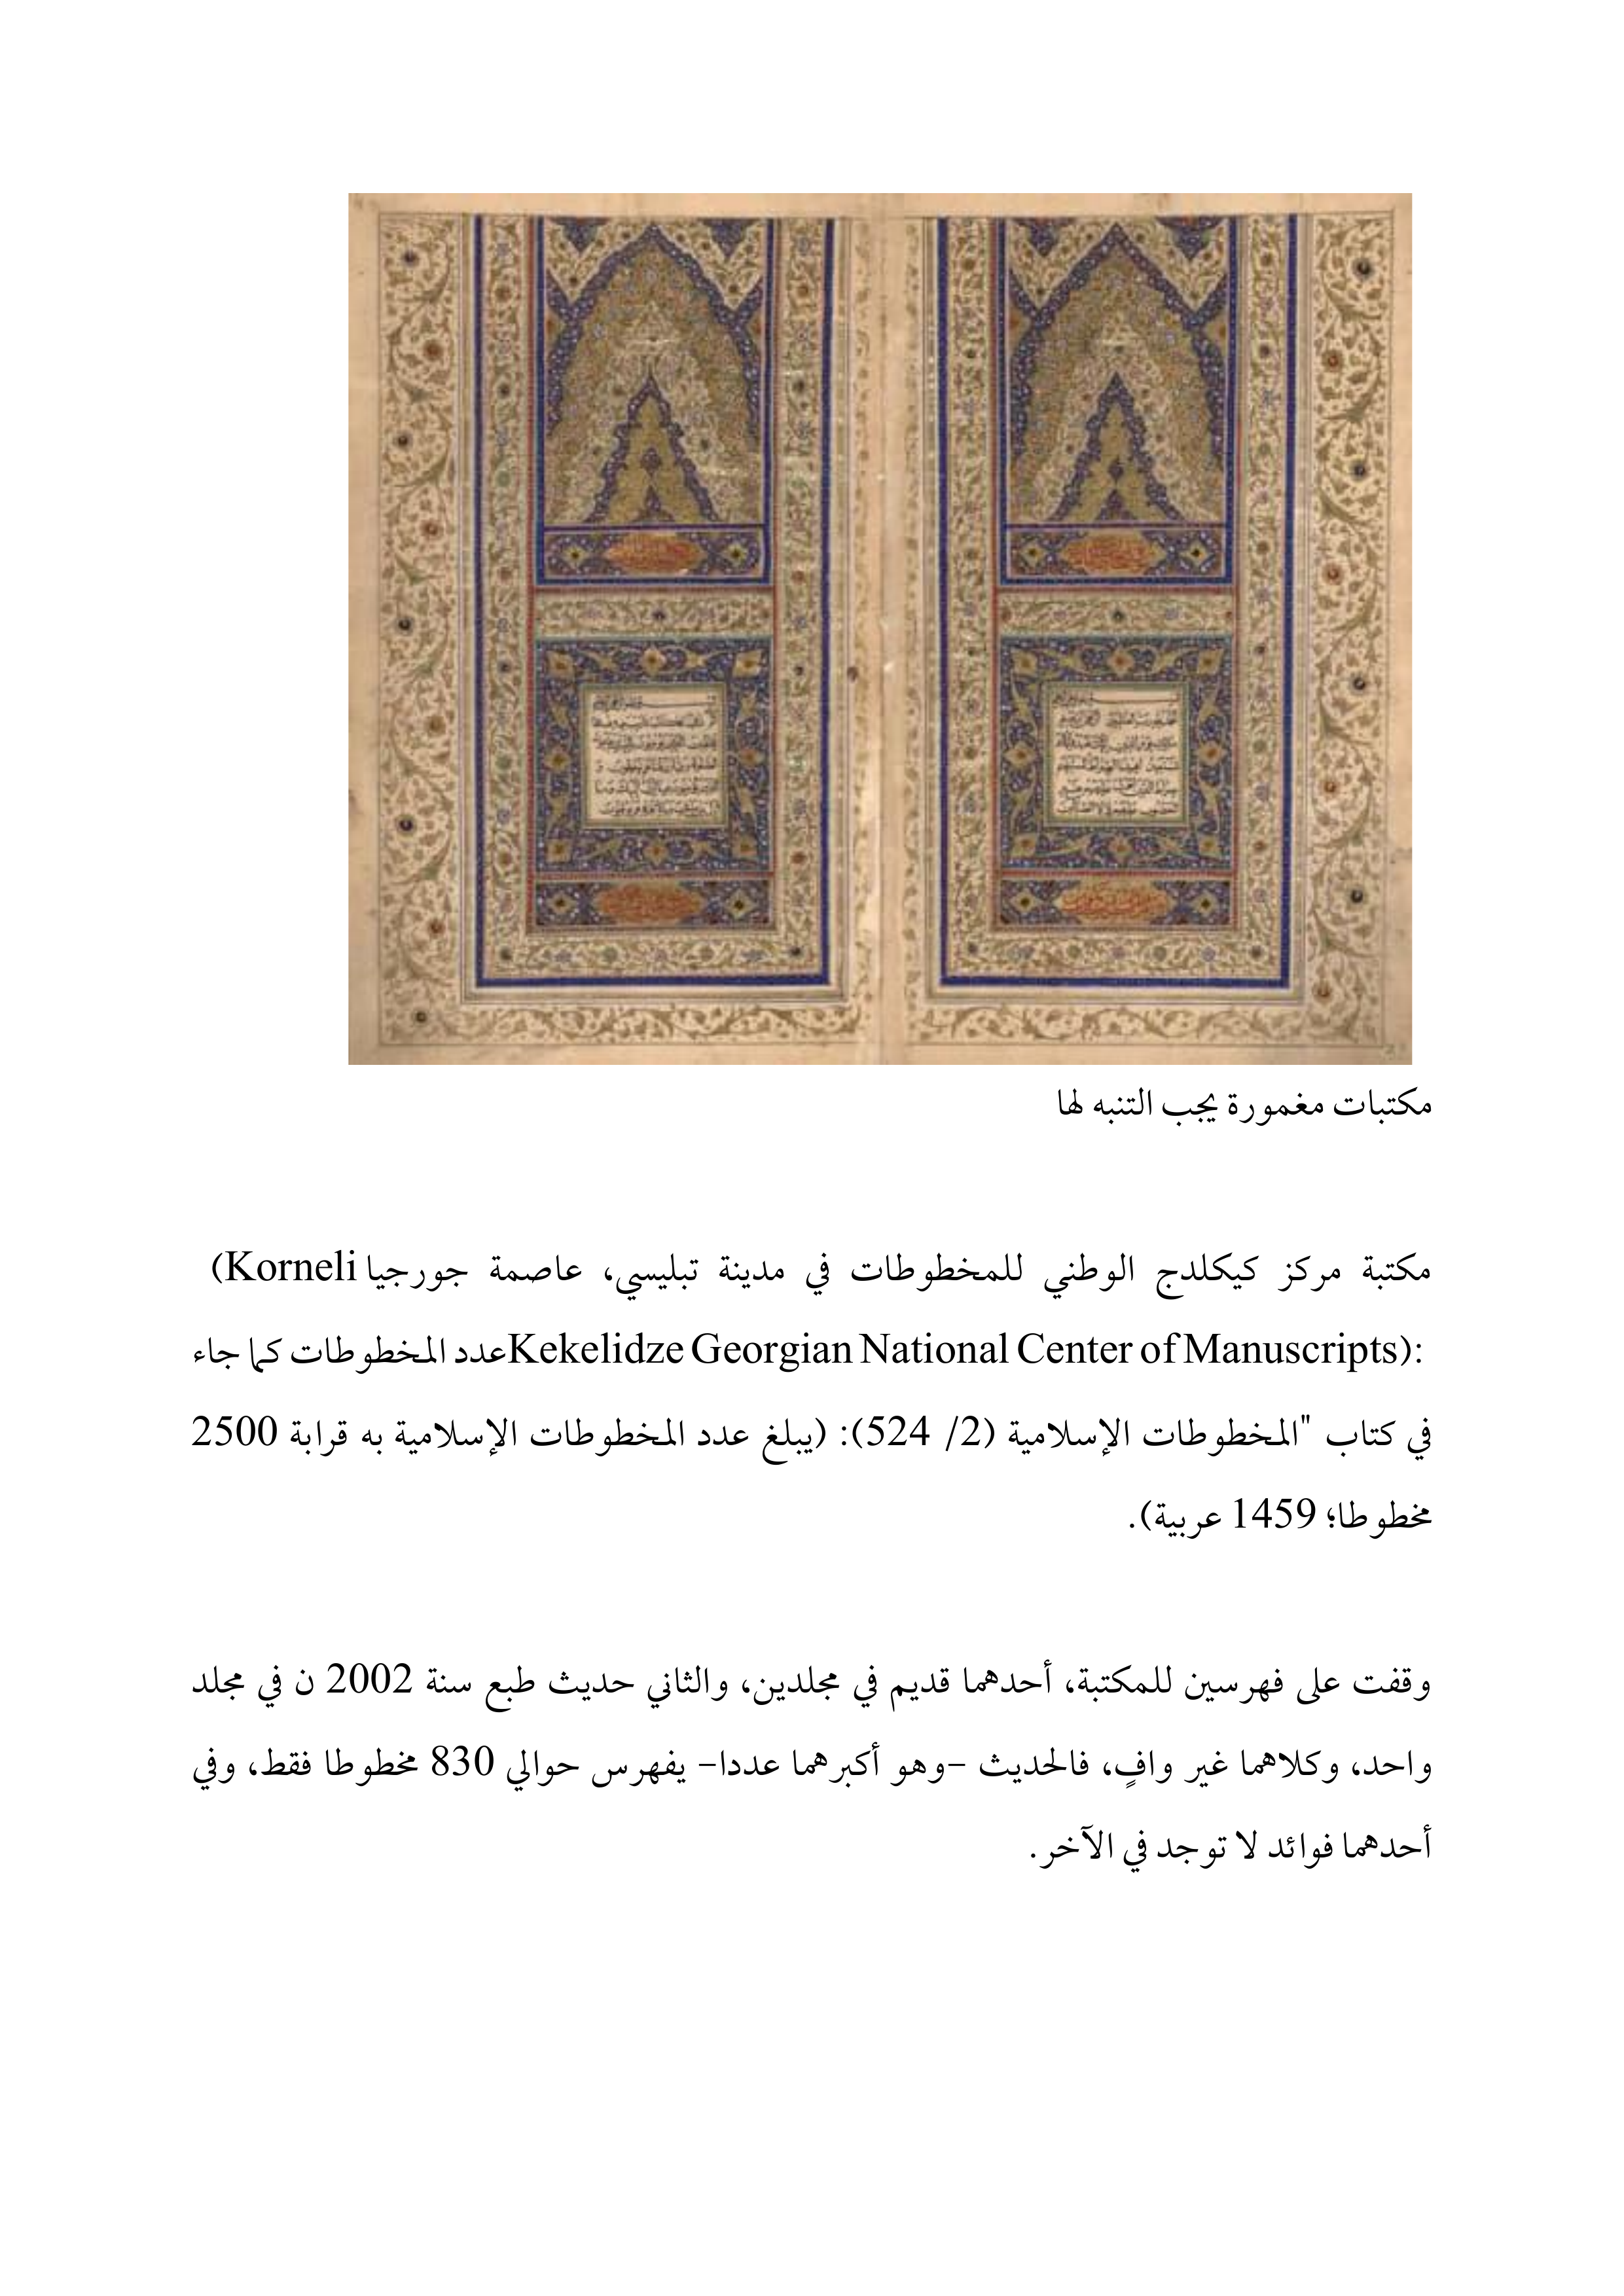 مكتبات مغمورة يجب التنبه لها
مكتبة مركز كيكلدج الوطني للمخطوطات في مدينة تبليسي، عاصمة جورجيا (Korneli
Kekelidze Georgian National Center of Manuscripts): عدد المخطوطات كما جاء
في كتاب "المخطوطات الإسلامية (2/ 524): (يبلغ عدد المخطوطات الإسلامية به قرابة 2500
مخطوطا؛ 1459 عربية).
وقفت على فهرسين للمكتبة، أحدهما قديم في مجلدين، والثاني حديث طبع سنة 2002 ن في مجلد
واحد، وكلاهما غير وافٍ، فالحديث -وهو أكبرهما عددا- يفهرس حوالي 830 مخطوطا فقط، وفي
أحدهما فوائد لا توجد في الآخر.